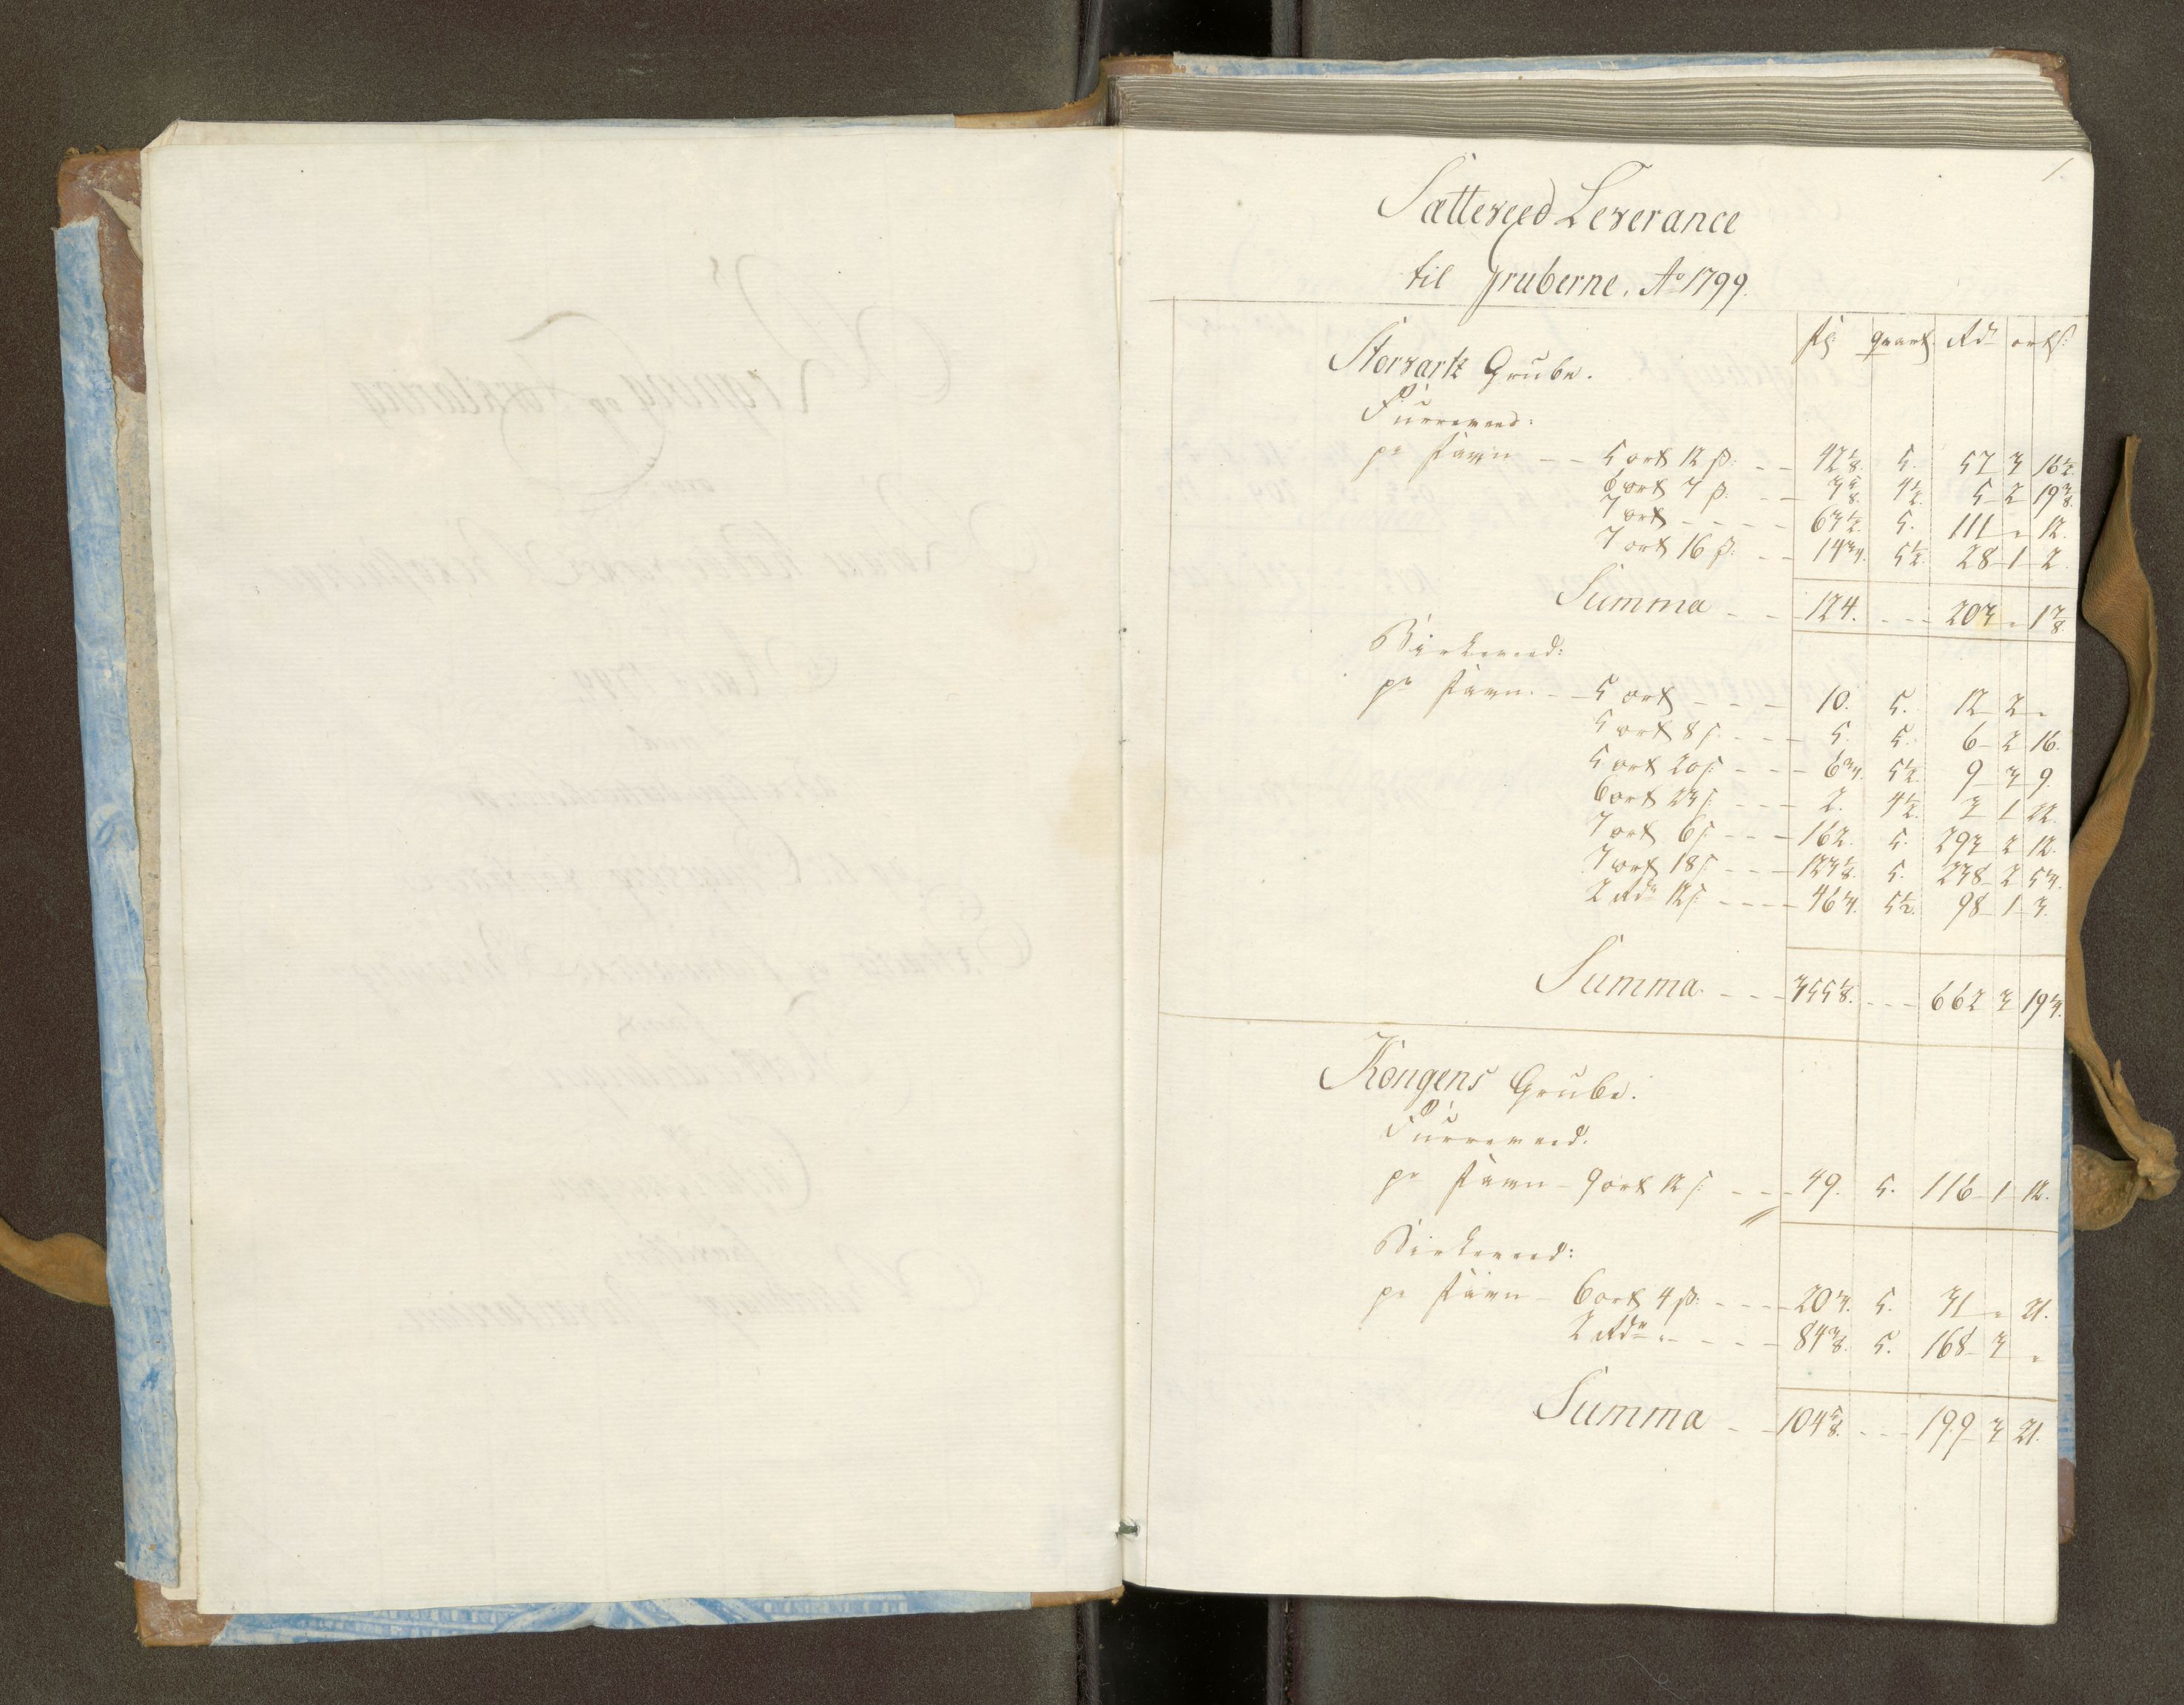 1.
Sætteveed Leverance
til Gruberne. Ao 1799.
fv: quart. Rdr ort s:
Storvartz Grube.
Furreveed:
pr favn - - 5 ort 12 s: - - 42 1/8. 5. 57 3 16 1/2.
6 ort 7 s: - - 3 5/8. 4 1/2. 5 2 19 3/8.
7 ort - - - - 63 1/2. 5. 111 " 12.
7 ort 16 s: - - 14 3/4. 5 1/2. 28 1 2.
Summa - - 124. - - - 203 " 1 7/8.
Birkeveed:
pr favn. - - 5 ort - - - - 10. 5. 12 2 "
5 ort 8 s: - - - 5. 5. 6 2 16.
5 ort 20 s: - - - 6 3/4. 5 1/2. 9 3 9.
6 ort 23 s: - - - 2. 4 1/2. 3 1 22.
7 ort 6 s: - - - 162. 5. 293 2 12.
7 ort 18 s: - - - 123 1/8. 5. 238 2 5 1/4.
2 Rdr 12 s: - - - - 46 1/4. 5 1/2. 98 1 3.
Summa - - - 355 1/8. - - - 662 3 19 1/4.
Kongens Grube.
Furreveed.
pr favn - 9 ort 12 s: - - - 49. 5. 116 1 12.
Birkeveed:
pr favn - 6 ort 4 s: - - - - 20 1/4. 5. 31 " 21.
2 Rdr " - - - - 84 3/8. 5. 168 3 "
Summa - - 104 5/8. - - - 199 3 21.